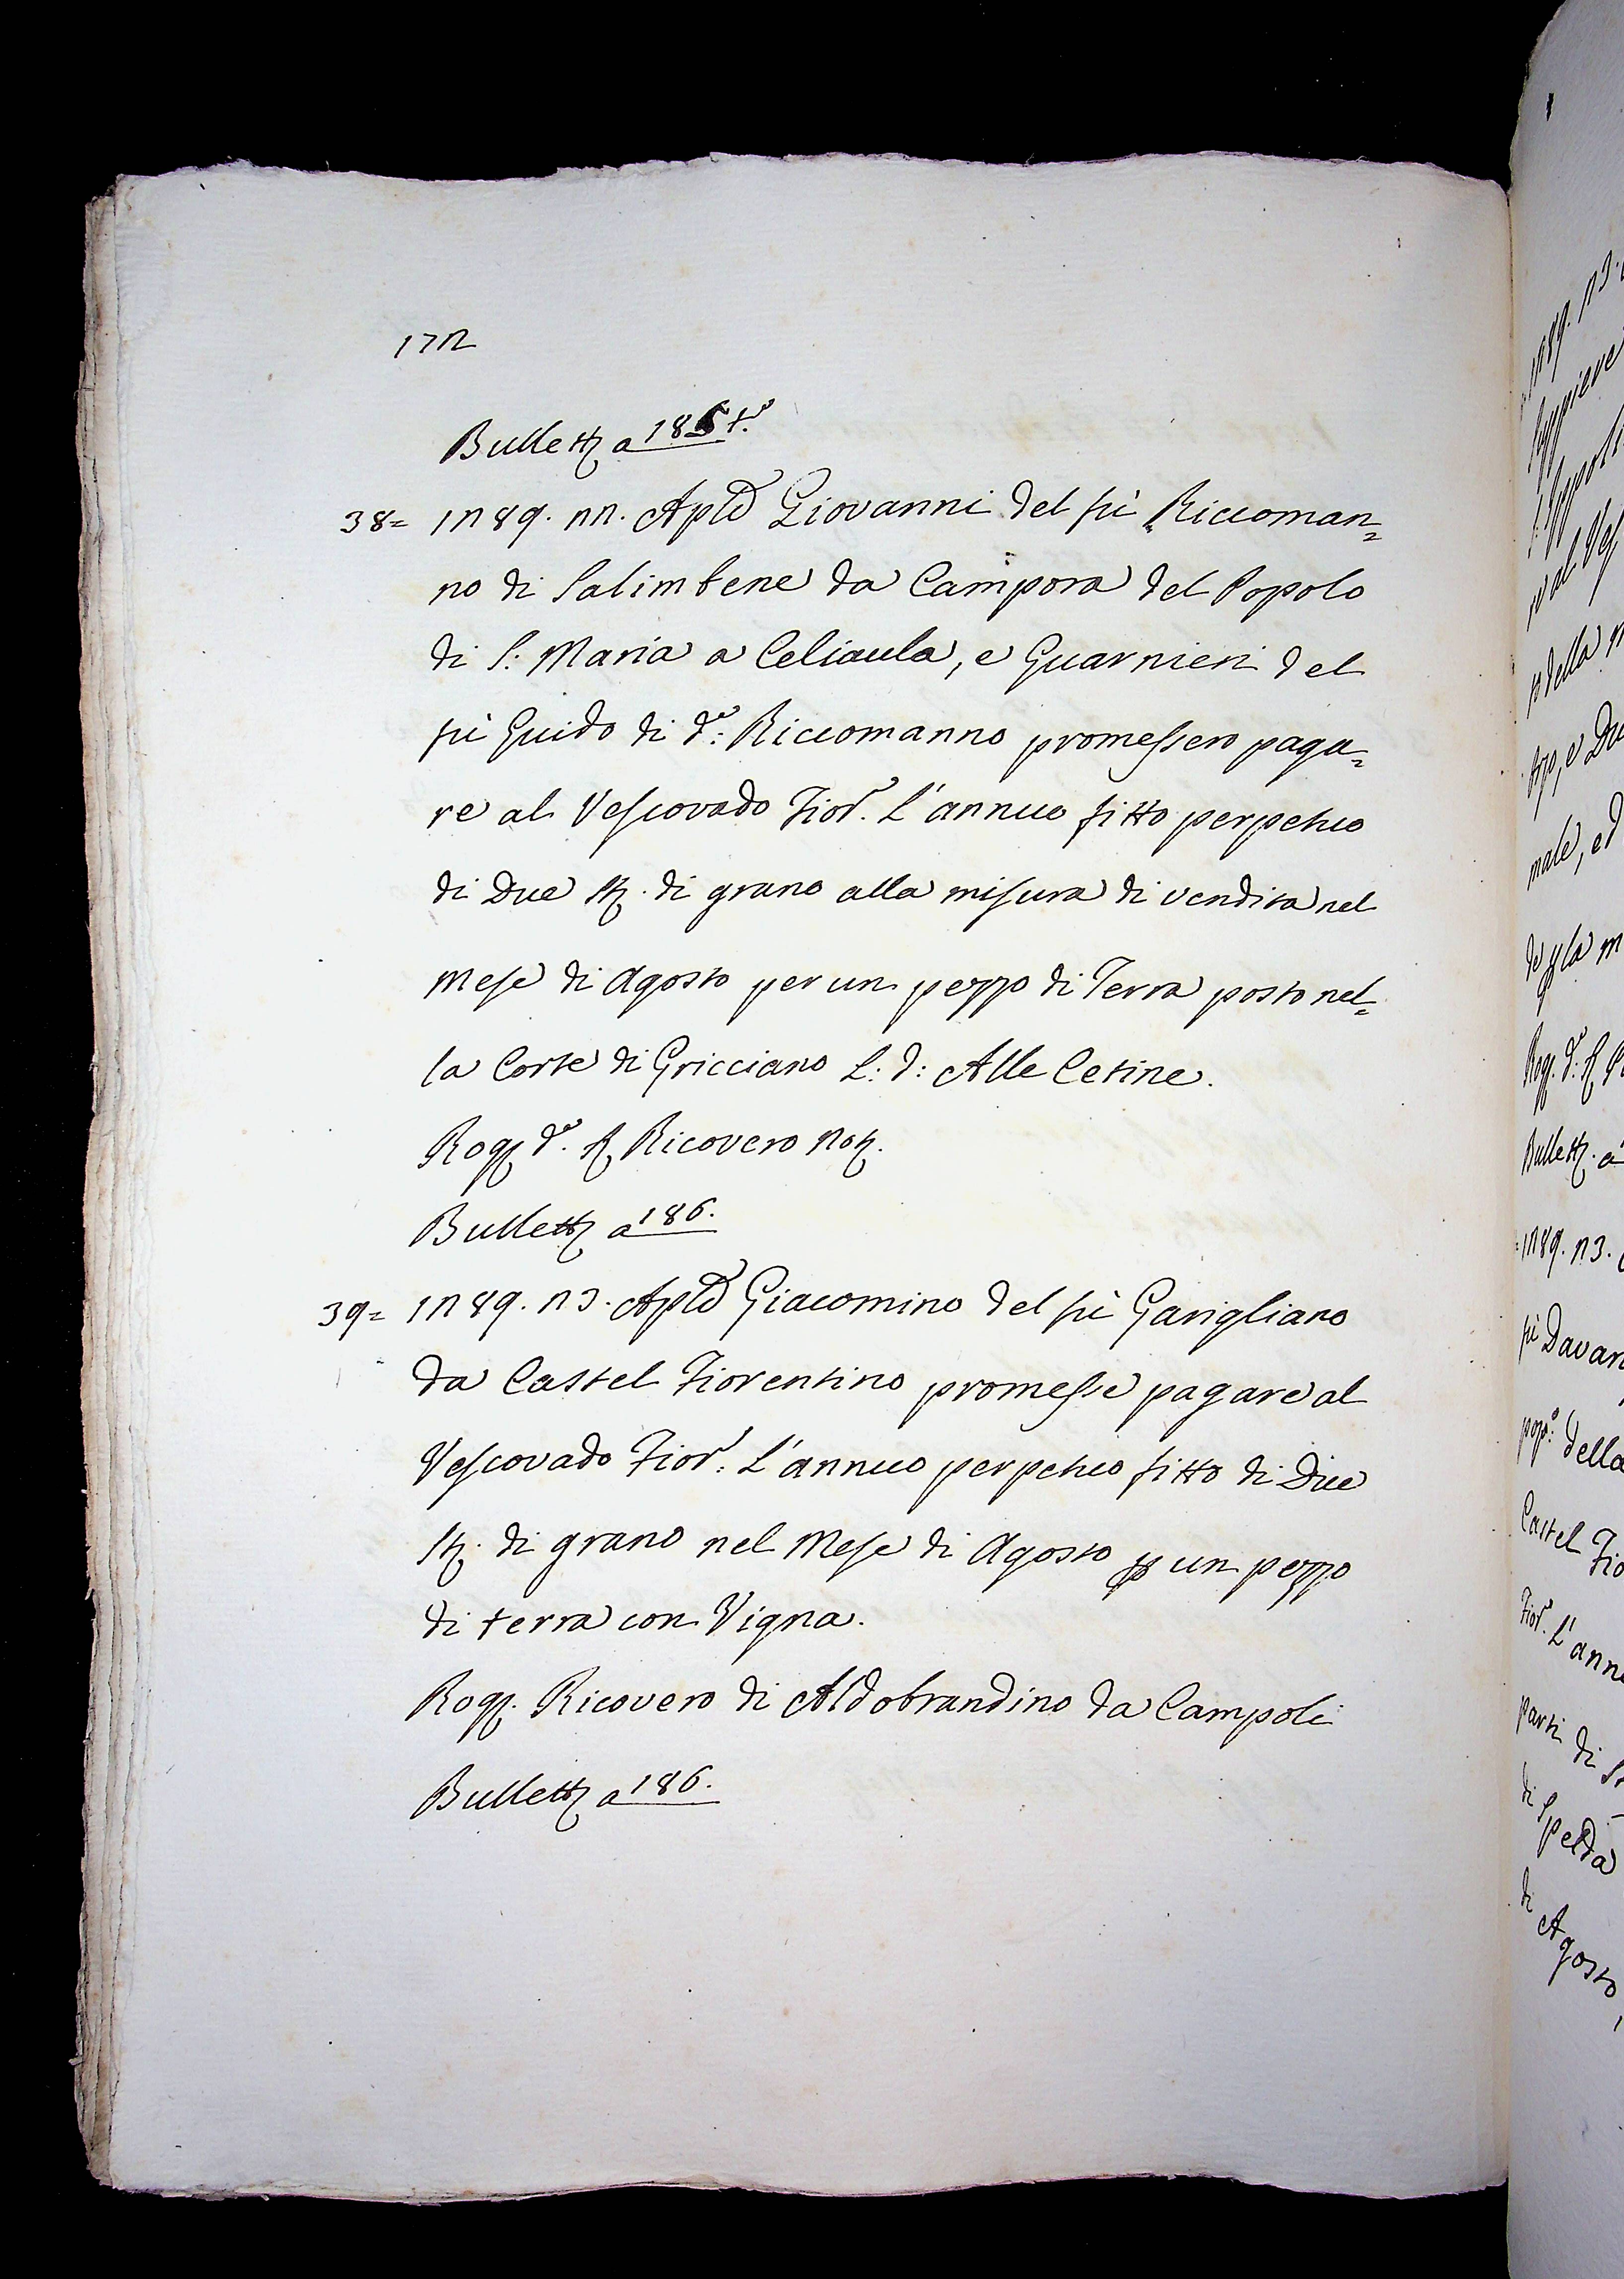 172
Bullett a 185 t.º
38= 1289. 22. Aple Giovanni del fù Riccoman=
no di Salimbene da Campora del Popolo
di S: Maria a Celiaula, e Guarnieri del
fù Guido di dº: Riccomanno promessero paga=
re al Vescovado Fior.º L'annuo fitto perpetuo
di Due St. di grano alla misura di vendita nel
Mese di Agosto per un pezzo di Terra posto nel=
la Corte di Gricciano L: d: Alle Cetine.
Rog. dº. S. Ricovero Not.
Bullett a 186.
39= 1289. 23. Aple Giacomino del fù Garigliano
da Castel Fiorentino promesse pagare al
Vescovado Fior: L'annuo perpetuo fitto di Due
St. di grano nel Mese di Agosto p un pezzo
di terra con Vigna.
Rog. Ricovero di Aldobrandino da Campoli
Bullett a 186.
1289. 23.
della
male, ed
Bullett. a
1289. 23.
fù Davan
popº: della
Castel Fio
Fior. L'annu
parti di St
di Spelda
di Agosto,